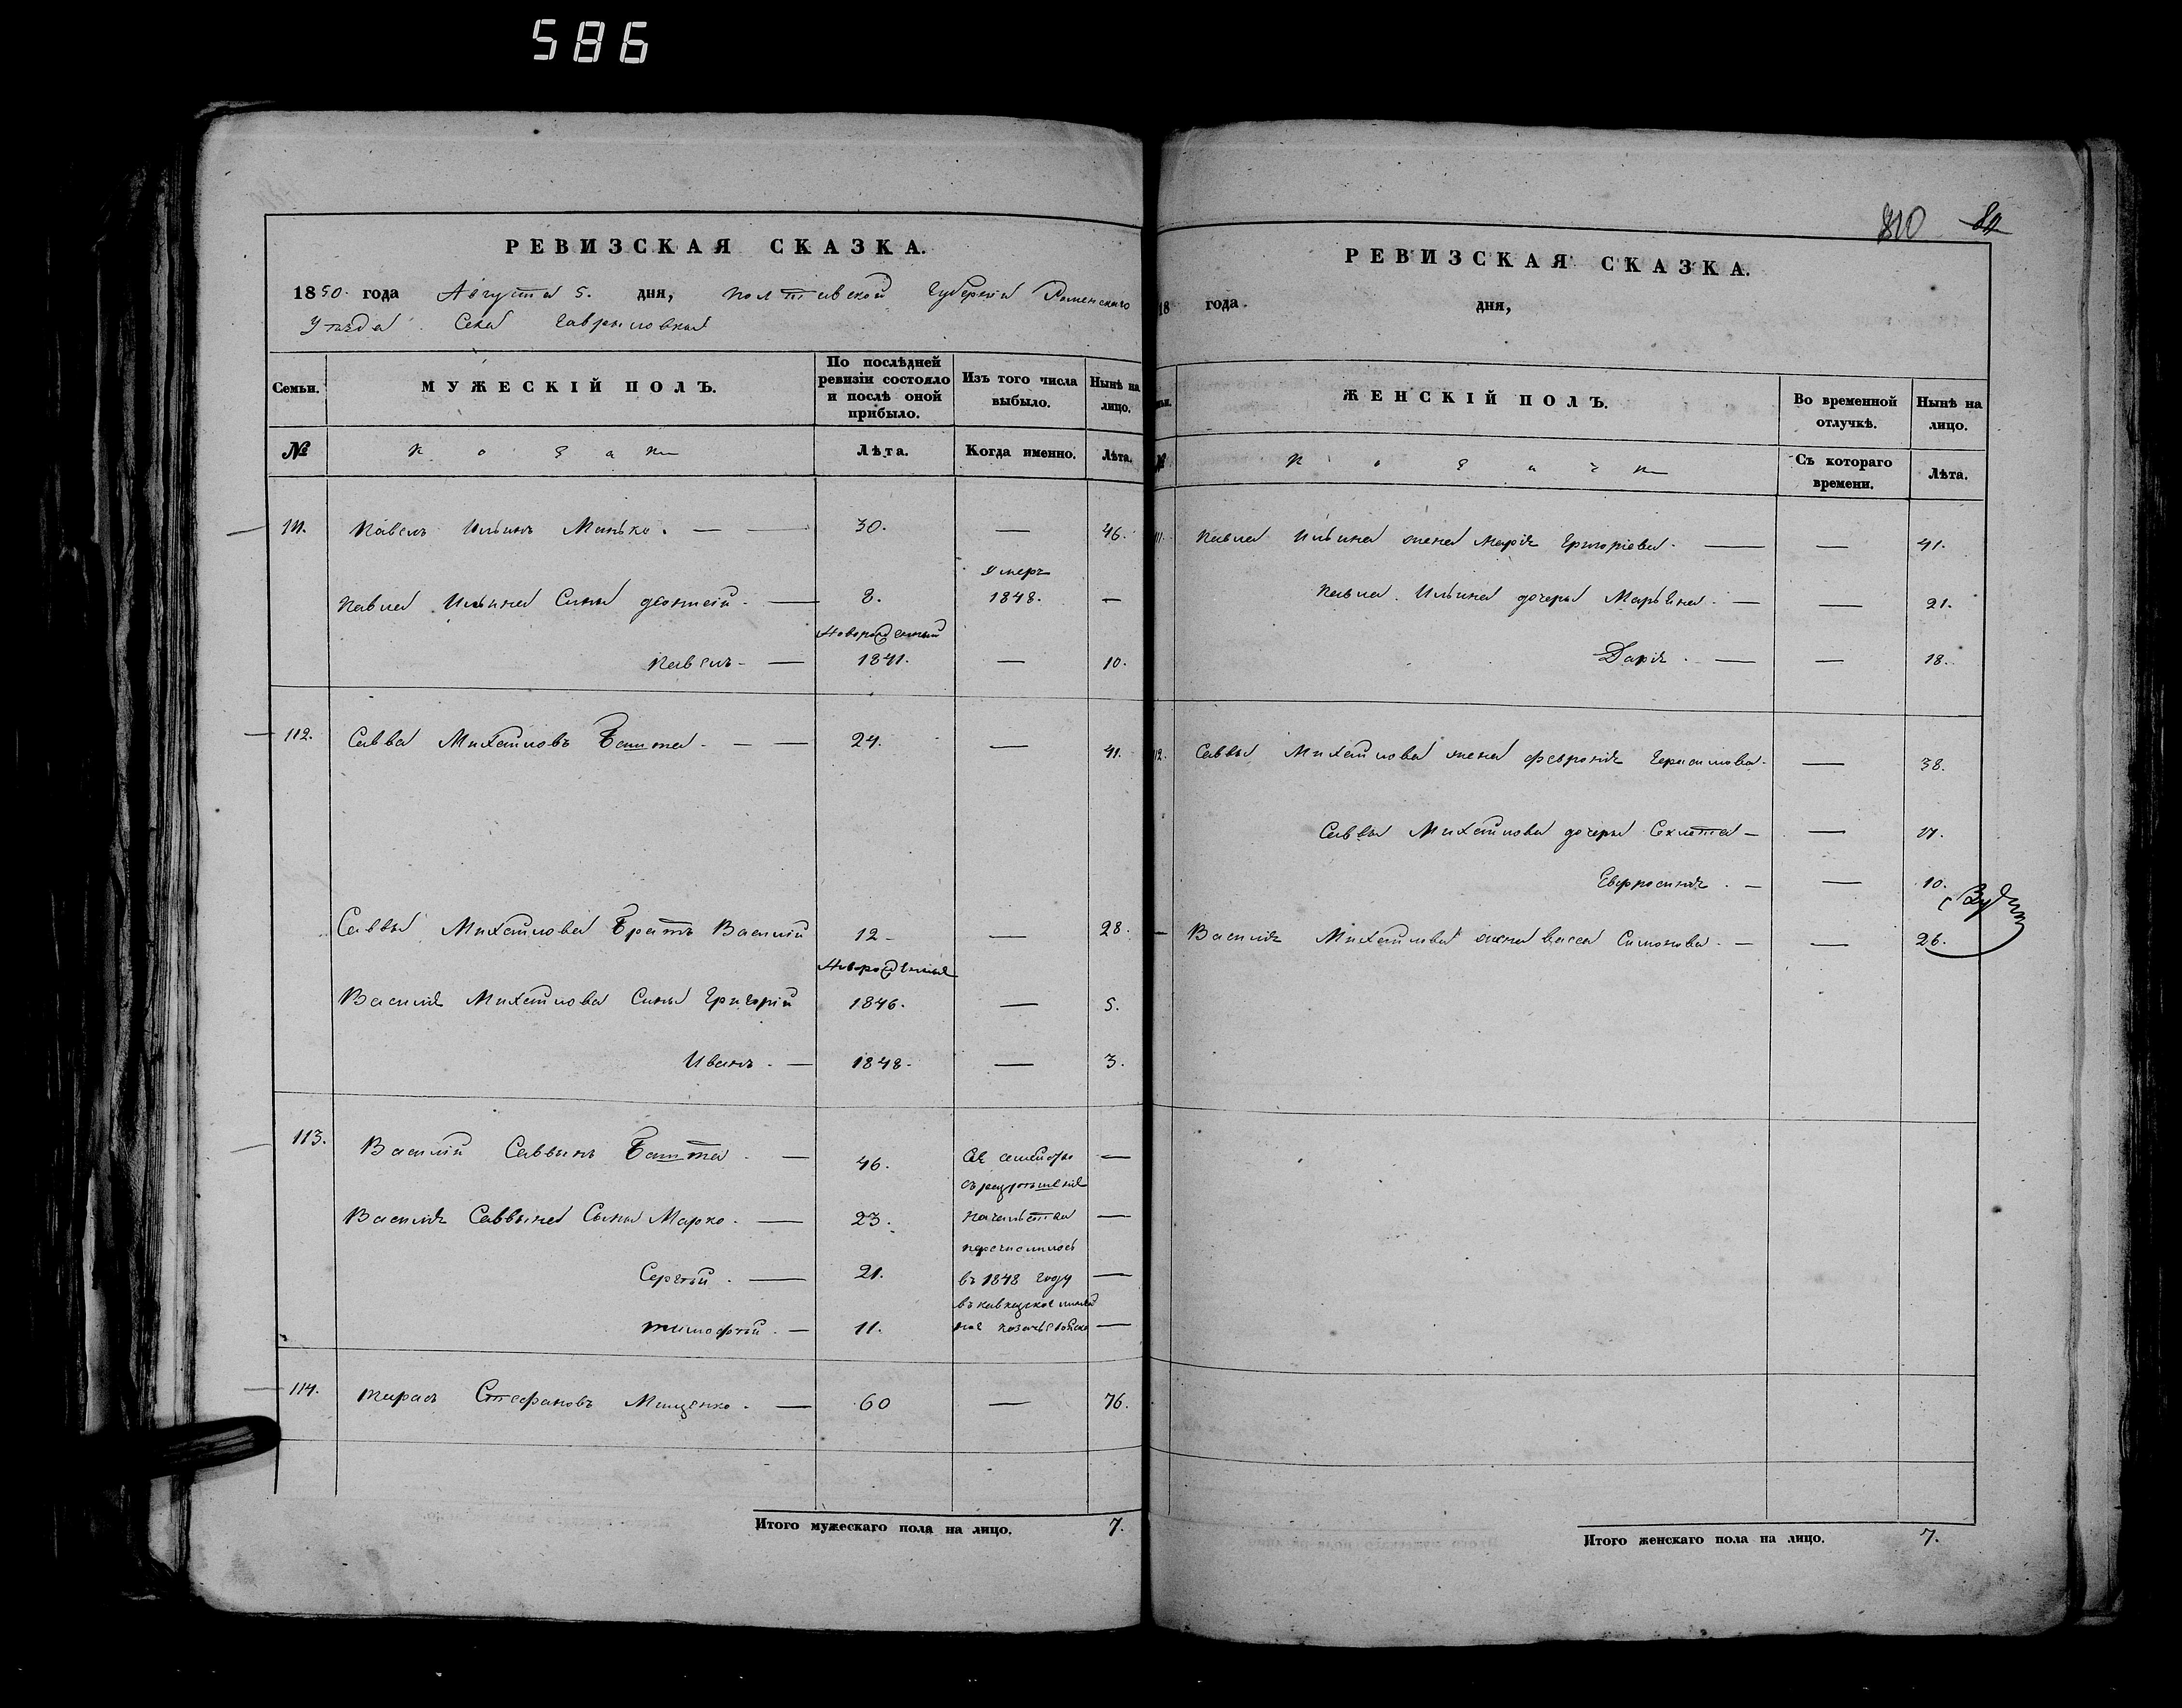 586
РЕВИЗСКАЯ СКАЗКА.
1850. года Августа 5. дня, Полтавской Губерніи Роменскаго
Уѣзда Села Гаврыловки
Семьи. МУЖЕСКІЙ ПОЛЪ. По послѣдней ревизіи состояло и послѣ оной прибыло. Изъ того числа выбыло. Нынѣ на лицо.
№ Козаки Лѣта. Когда именно. Лѣта.
111. Павелъ Ильинъ Манько. — 30. — 46.
Умеръ
Павла Ильина Сыны 8. 1848. —
Новорожденный
Павелъ — 1841. — 10.
112. Савва Михайловъ Башта. — 24. — 41.
Саввы Михайлова Братъ Василій 12 — 28.
Новорожденные
Василія Михайлова Сыны Григорій 1846. — 5.
Иванъ. — 1848. — 3.
113. Василій Саввинъ Башта — 46. Съ семейством —
съ разрѣшенія
Василія Саввина Сыны Марко. — 23. Начальства —
перечислился
Сергѣй. — 21. въ 1848 году —
въ кавказское линей
Тимофѣй. — 11. ное казачье войско —
114. Тарасъ Стефановъ Мищенко. — 60 — 76.
Итого мужескаго пола на лицо. 7.
810 82
РЕВИЗСКАЯ СКАЗКА.
18 года. дня,
ЖЕНСКІЙ ПОЛЪ. Во временной отлучкѣ. Нынѣ на лицо.
№ Козачки Съ котораго времени. Лѣта.
111. Павла Ильина жена Марія Григоріева. — — 41.
Павла Ильина дочеры Марьяна. — — 21.
Дарія. — — 18.
112. Саввы Михайлова жена Февронія Герасимова. — 38.
Саввы Михайлова дочеры — — 17.
Евфросинія. — — 10.
Василія Михайлова жена Васса Симонова. — — 26.
Итого женскаго пола на лицо. 7.